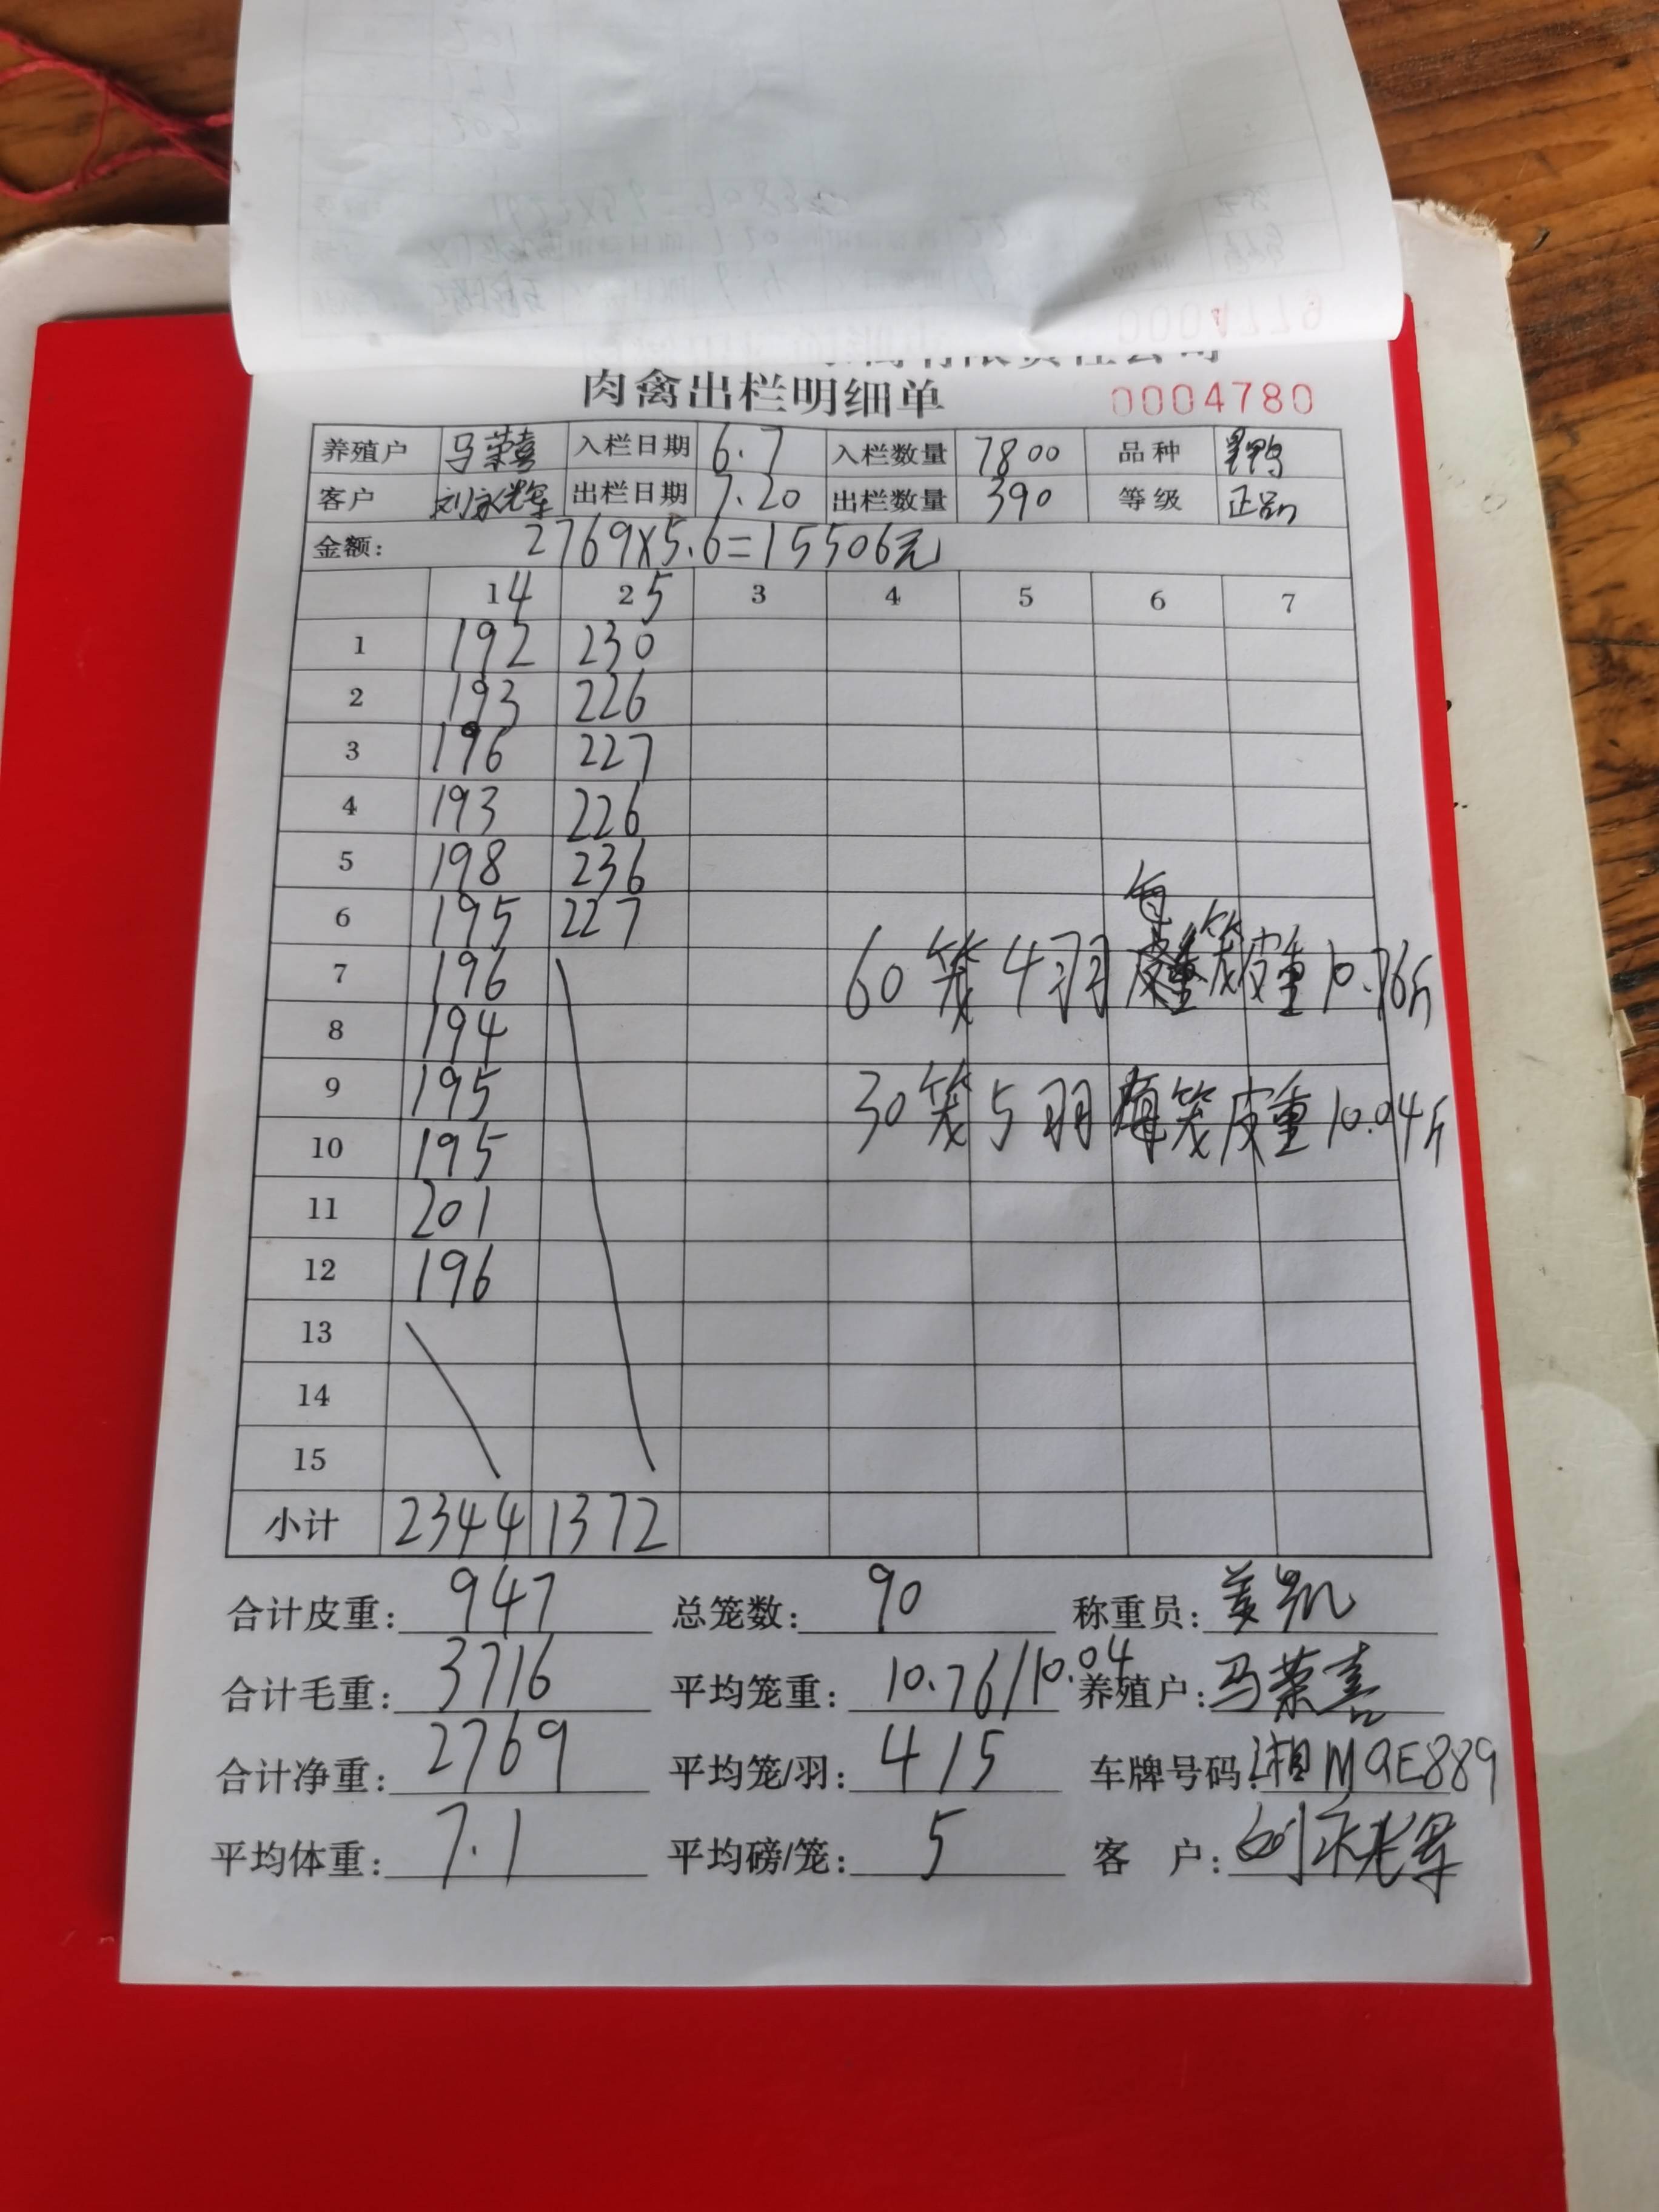 肉禽出栏明细单 0004780
养殖户 马荣喜 入栏日期 6.7 入栏数量 7800 品种
客户 刘永辉 出栏日期 7.20 出栏数量 390 等级 正品
金额: 2769X5.6=15506元
14 25 3 4 5 6 7
1 192 230
2 193 226
3 196 227
4 193 226
5 198 236
6 195 227
7 196
60笼4羽每笼皮重10.76斤
8 194
9 195
30笼5羽每笼皮重10.04斤
10 195
11 201
12 196
13
14
15
小计 2344 1372
合计皮重: 947 总笼数: 90 称重员:
合计毛重: 3716 平均笼重: 10.76/10.04 养殖户: 马荣喜
合计净重: 2769 平均笼/羽: 4/5 车牌号码: 湘MQE889
平均体重: 7.1 平均磅/笼: 5 客 户: 刘永辉